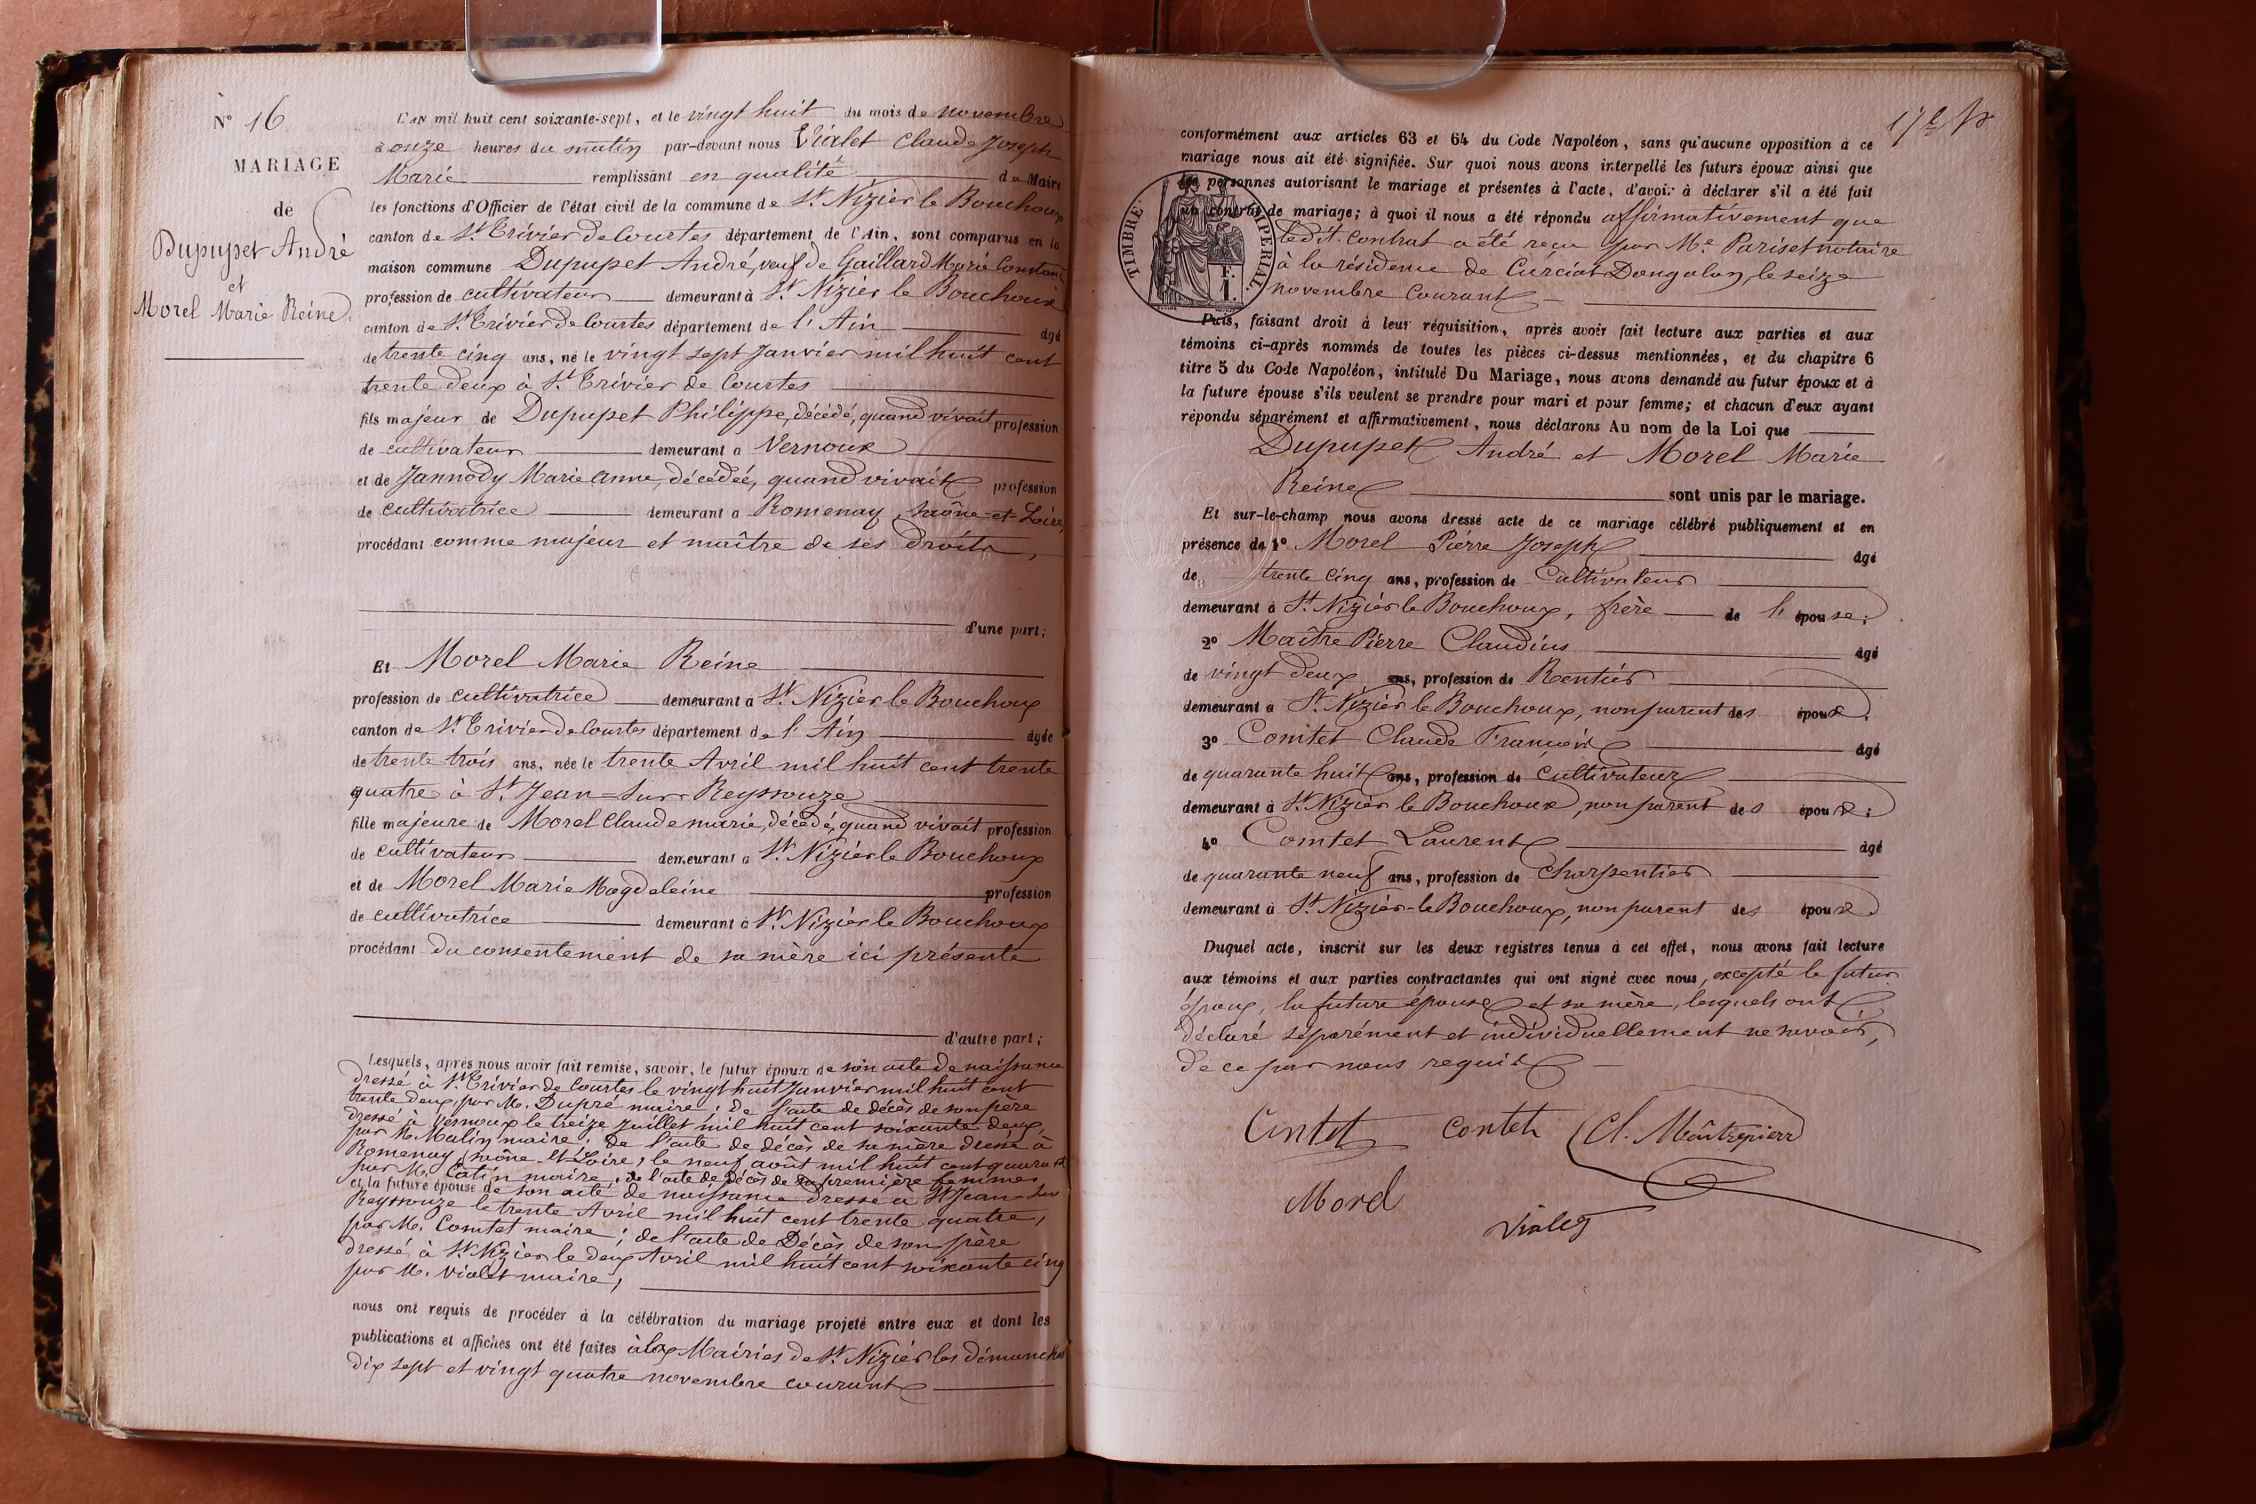 N° 16
MARIAGE
de
Dupupet André
et
Morel Marie Reine
L'AN mil huit cent soixante-sept, et le vingt huit du mois de novembre
à onze heures du matin par-devant nous Vialet Claude Joseph
Marie remplissant en qualité de Maire
les fonctions d'Officier de l'état civil de la commune de St. Nizier le Bouchoux
canton de St. Trivier de Courtes département de l'Ain, sont comparus en la
maison commune Dupupet André, veuf de Gaillard Marie
profession de cultivateur demeurant à St. Nizier le Bouchoux
canton de St. Trivier de Courtes département de l'Ain âgé
de trente cinq ans, né le vingt sept Janvier mil huit cent
trente deux à St. Trivier de Courtes
fils majeur de Dupupet Philippe, décédé, quand vivait profession
de cultivateur demeurant a Vernoux
et de Jannody Marie anne, décédée, quand vivait profession
de cultivatrice demeurant a Romenay, Saône-et-Loire,
procédant comme majeur et maître de ses droits,
d'une part;
Et Morel Marie Reine
profession de cultivatrice demeurant à St. Nizier le Bouchoux
canton de St. Trivier de Courtes département de l'Ain âgée
de trente trois ans, née le trente Avril mil huit cent trente
quatre à St. Jean=Sur-Reyssouze
fille majeure de Morel Claude marie, décédé, quand vivait profession
de cultivateur demeurant a St. Nizier le Bouchoux
et de Morel Marie Magdeleine profession
de cultivatrice demeurant à St. Nizier le Bouchoux
procédant du consentement de sa mère ici présente
d'autre part;
Lesquels, après nous avoir fait remise, savoir, le futur époux de son acte de naissance
dressé à St. Trivier de Courtes le vingt huit Janvier mil huit cent
trente deux, par M. Dupré maire; de l'acte de décès de son père
dressé à Vernoux le treize Juillet mil huit cent soixante deux,
par M. Malin maire; de l'acte de décès de sa mère dressé à
Romenay, Saône et Loire, le neuf août mil huit cent
par M. Catin maire; de l'acte de décès de sa première femme
et la future épouse de son acte de naissance dressé à St Jean Sur
Reyssouze le trente Avril mil huit cent trente quatre,
par M. Comtet maire; de l'acte de Décès de son père
dressé à St. Nizier le deux Avril mil huit cent soixante cinq
par M. Vialet maire,
nous ont requis de procéder à la célébration du mariage projeté entre eux et dont les
publications et affiches ont été faites à la Mairies de St. Nizier les dimanches
dix sept et vingt quatre novembre courant
conformément aux articles 63 et 64 du Code Napoléon, sans qu'aucune opposition à ce
mariage nous ait été signifiée. Sur quoi nous avons interpellé les futurs époux ainsi que
les personnes autorisant le mariage et présentes à l'acte, d'avoir à déclarer s'il a été fait
un contrat de mariage; à quoi il nous a été répondu affirmativement que
ledit contrat a été reçu par Me. Pariset notaire
à la résidence de Curciat Dongalon, le seize
novembre courant
TIMBRE IMPERIAL
F.
1.
Puis, faisant droit à leur réquisition, après avoir fait lecture aux parties et aux
témoins ci-après nommés de toutes les pièces ci-dessus mentionnées, et du chapitre 6
titre 5 du Code Napoléon, intitulé Du Mariage, nous avons demandé au futur époux et à
la future épouse s'ils veulent se prendre pour mari et pour femme; et chacun d'eux ayant
répondu séparément et affirmativement, nous déclarons Au nom de la Loi que
Dupupet André et Morel Marie
Reine sont unis par le mariage.
Et sur-le-champ nous avons dressé acte de ce mariage célébré publiquement et en
présence de 1° Morel Pierre Joseph âgé
de trente cinq ans, profession de Cultivateur
demeurant à St. Nizier le Bouchoux, frère de l' épouse;
2° Maître Pierre Claudius âgé
de vingt deux ans, profession de Rentier
demeurant a St. Nizier le Bouchoux, non parent des époux;
3° Comtet Claude François âgé
de quarante huit ans, profession de cultivateur
demeurant à St. Nizier le Bouchoux, non parent des époux;
4° Comtet Laurent âgé
de quarante neuf ans, profession de Charpentier
demeurant à St. Nizier-le Bouchoux, non parent des époux
Duquel acte, inscrit sur les deux registres tenus à cet effet, nous avons fait lecture
aux témoins et aux parties contractantes qui ont signé avec nous, excepté le futur
époux, la future épouse et sa mère, lesquels ont
déclaré séparément et individuellement ne savoir,
de ce par nous requis
Contet Cl. Maîtrepierre
Morel
Vialet